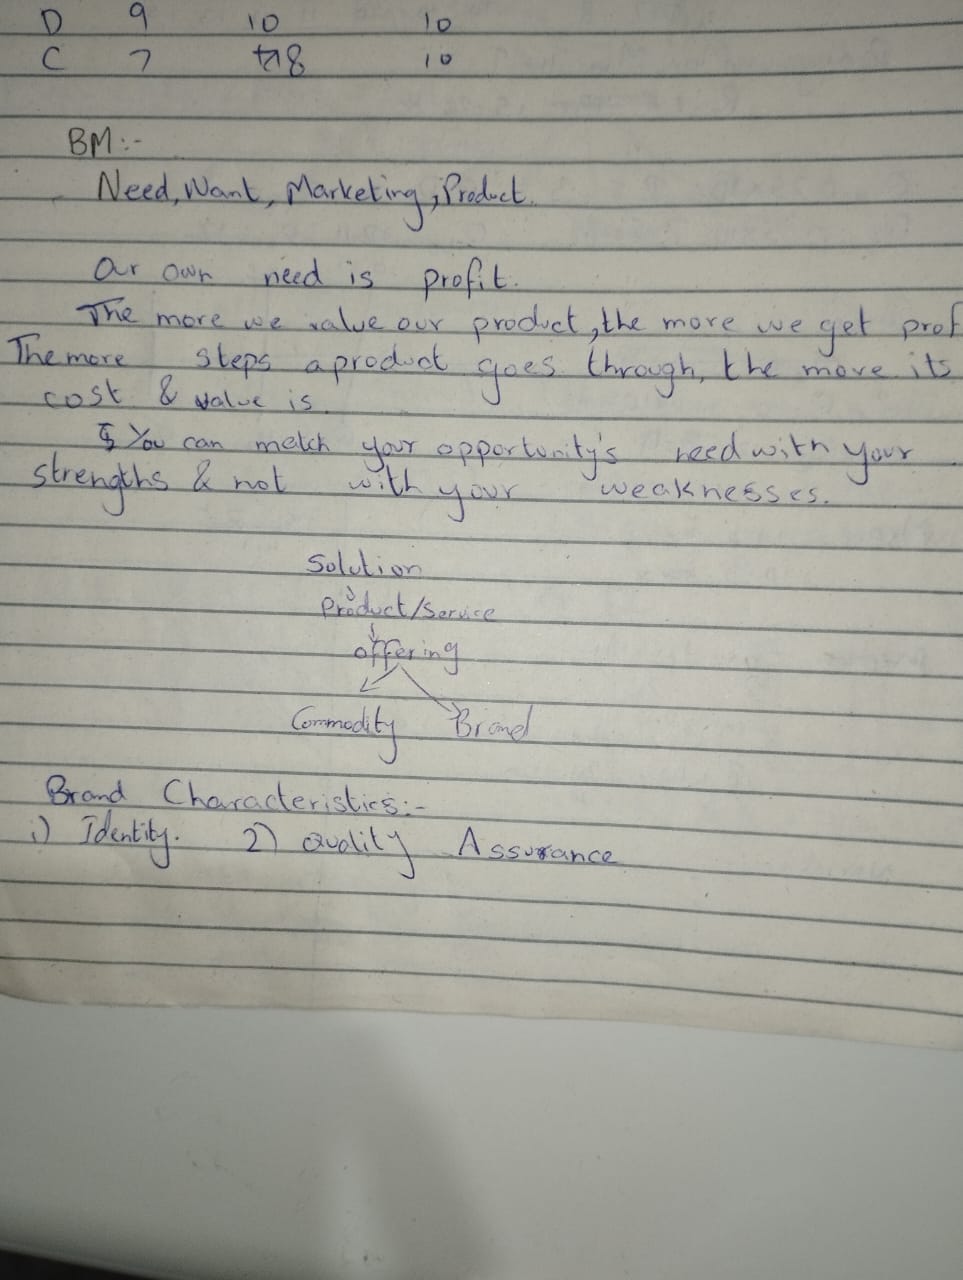 D 9 10 10
C 7 8 10
BM:-
Need, Want, Marketing, Product.
Our own need is profit.
The more we value our product, the more we get prof
The more steps a product goes through, the more its
cost & value is.
You can match your opportunity's need with your
strengths & not with your weaknesses.
Solution
Product/Service
offering
Commodity Brand
Brand Characteristics:-
1) Identity. 2) Quality Assurance